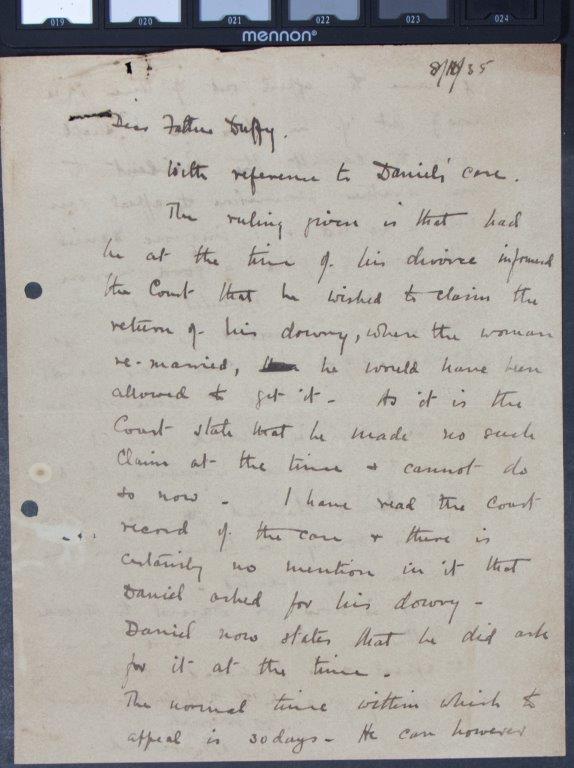 019 020 021 022 023 024
mennon®
8/10/35
Dear Father Duffy.
With reference to Daniel's case.
The ruling given is that had
he at the time of his divorce informed
the Court that he wished to claim the
return of his dowry, when the woman
re-married, he would have been
allowed to get it - As it is the
Court state that he made no such
claim at the time & cannot do
so now - I have read the Court
record of the case & there is
certainly no mention in it that
Daniel asked for his dowry -
Daniel now states that he did ask
for it at the time -
The normal time within which to
appeal is 30 days - He can however